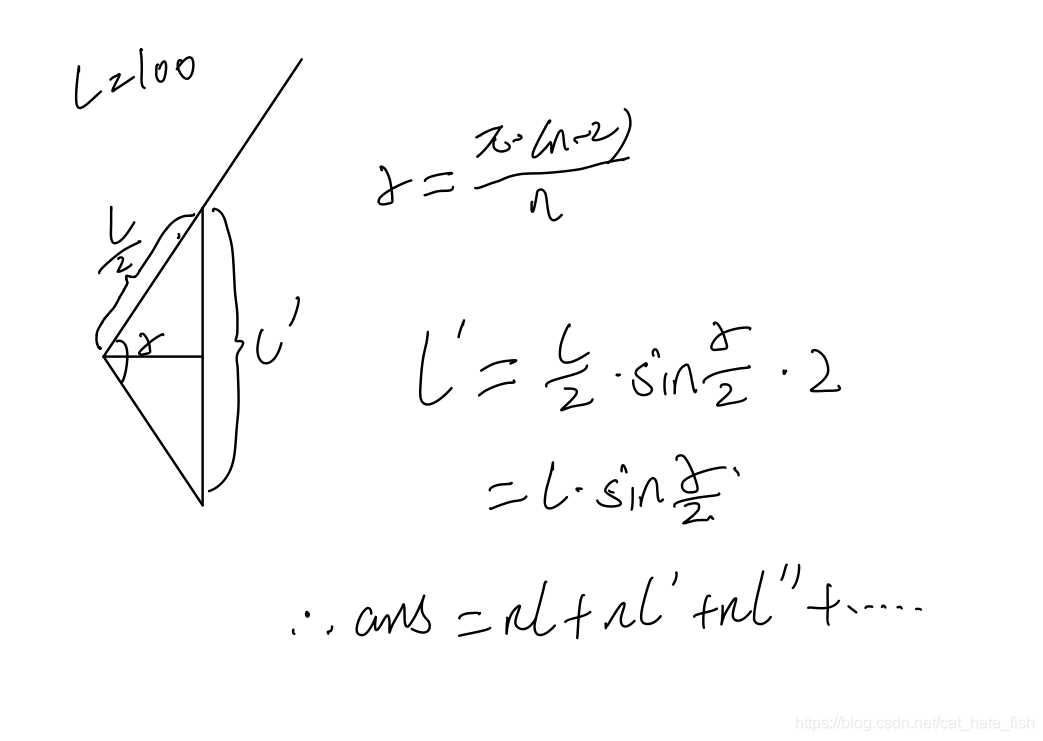 L=100
γ = π·(n-2)/n
L/2
γ
L'
L' = L/2 · sin γ/2 · 2
= L · sin γ/2
∴ ans = nL + nL' + nL'' + ······
https://blog.csdn.net/cat_hate_fish